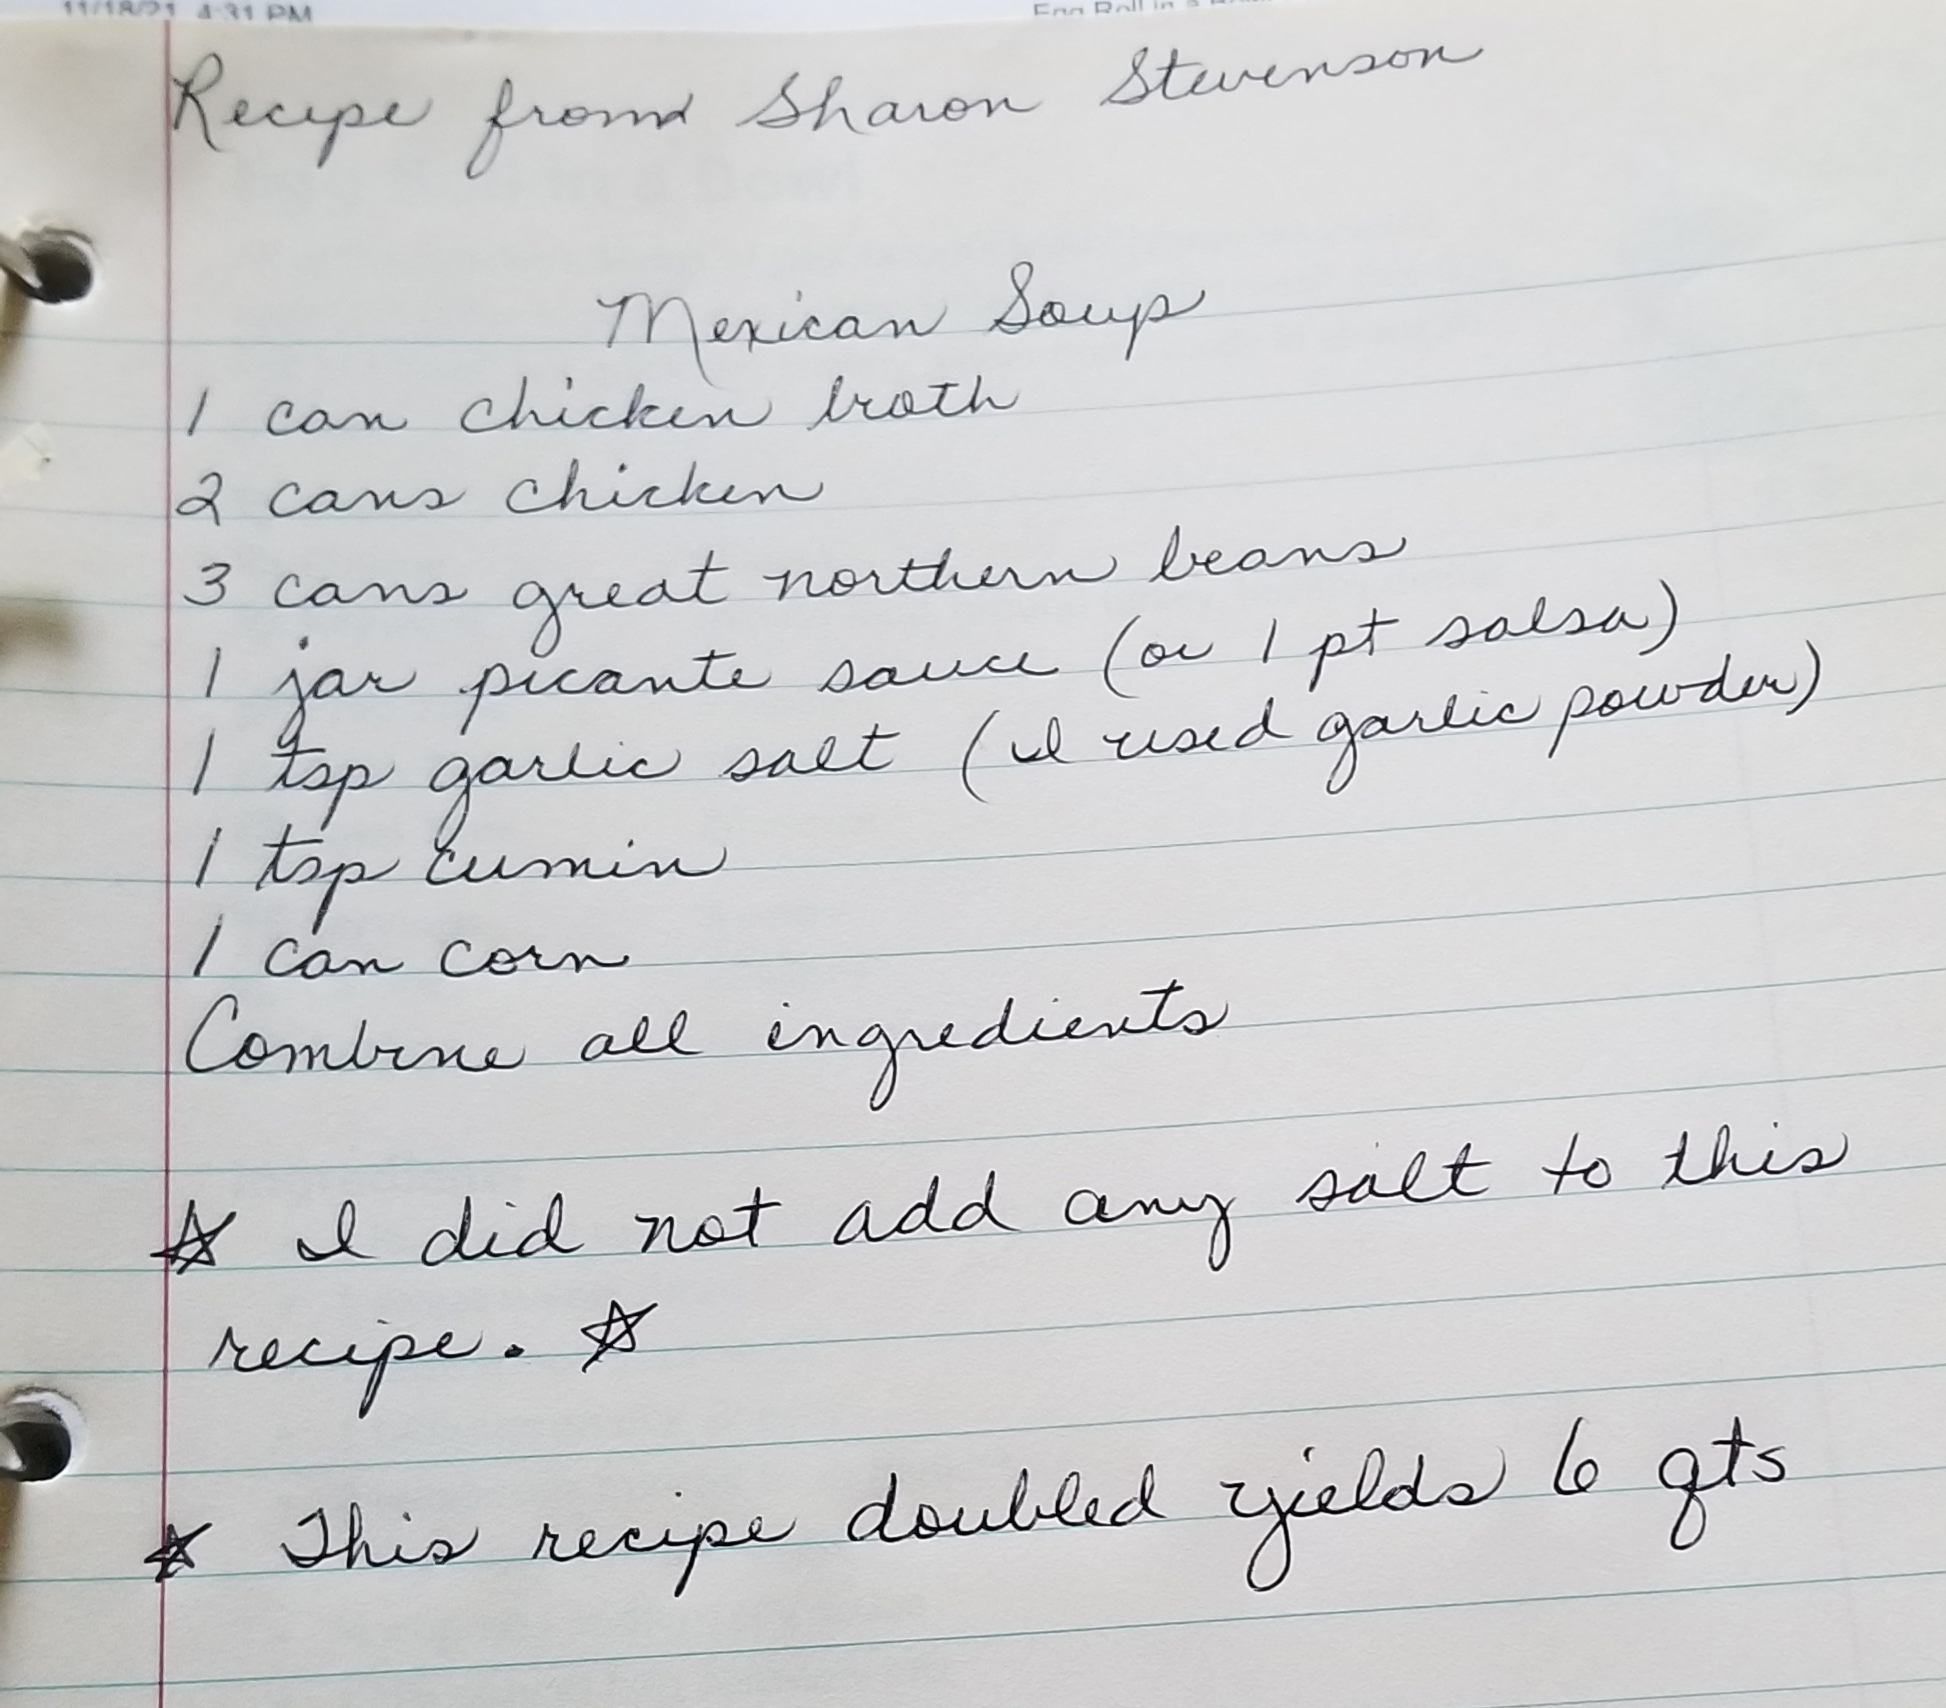 11/18/21, 4:31 PM
Egg Roll in a
Recipe from Sharon Stevenson
Mexican Soup
1 can chicken broth
2 cans chicken
3 cans great northern beans
1 jar picante sauce (or 1 pt salsa)
1 tsp garlic salt (I used garlic powder)
1 tsp cumin
1 can corn
Combine all ingredients
☆ I did not add any salt to this
recipe. ☆
☆ This recipe doubled yields 6 qts